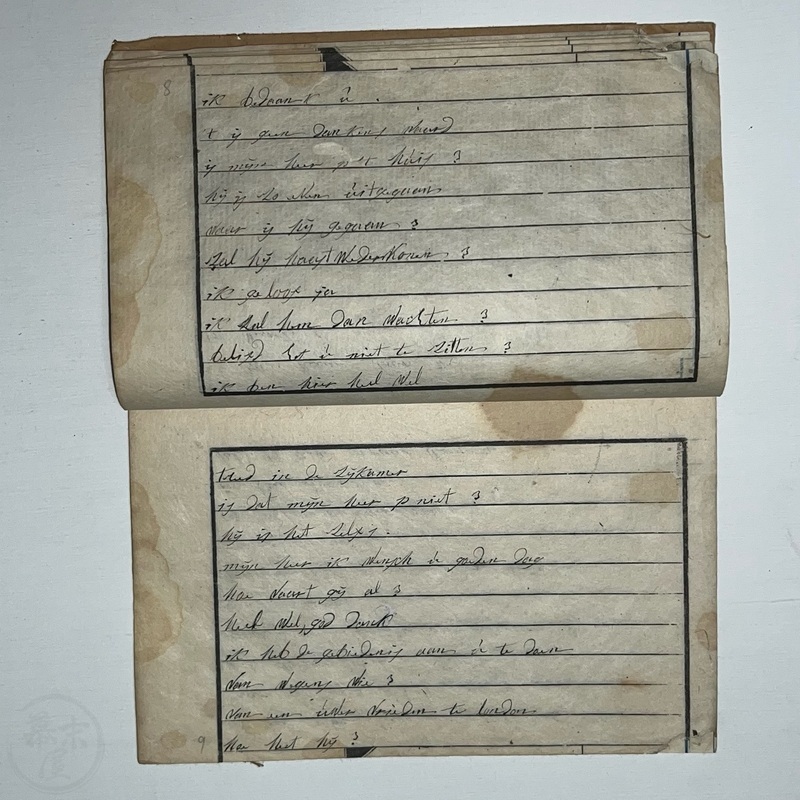 8
ik bedaank ú.
t is geen dankens waard
is mijn heer p t húis ?
hij is zo even úitgegaan
waar is hij gegaan ?
zal hij haast wederkomen ?
ik geloof ja
ik zal hem dan wachten ?
belief het ú niet te zitten ?
ik ben hier heel wel
tred in de zijkamer
is dat mijn heer p niet ?
hij is het zelfs.
mijn heer ik wensch ú goeden dag
hoe vaart gij al ?
heel wel, god danck
ik heb de gebiedenis aan ú te doen
van wegens wie ?
van een úwer vrieden te london
hoe heet hij ?
9